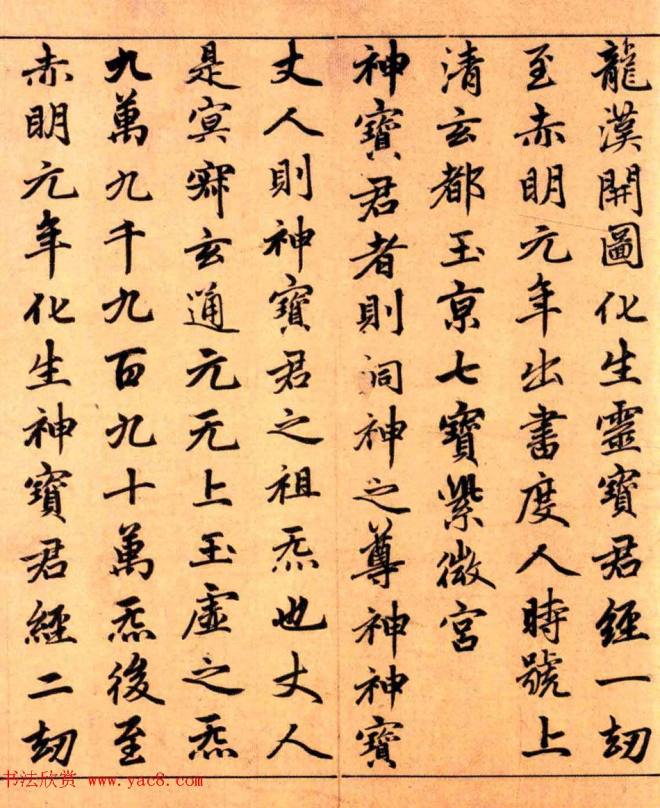 龍漢開圖化生靈寶君經一劫
至赤明元年出書度人時號上
清玄都玉京七寶紫微宮
神寶君者則洞神之尊神神寶
丈人則神寶君之祖炁也丈人
是寘寂玄通元无上玉虛之炁
九萬九千九百九十萬炁後至
赤明元年化生神寶君經二劫
书法欣赏 www.yac8.com